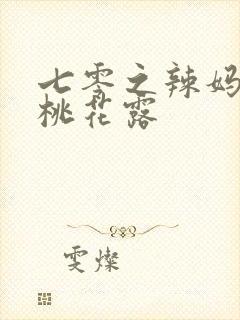 七零之辣妈
桃花露
雯燦